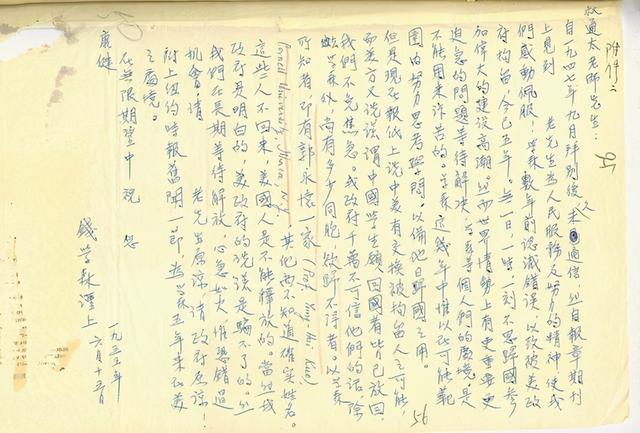 附件二
叔通太老师先生：
自一九四七年九月拜别後久未通信，然自报章期刊
上見到　老先生为人民服務及努力的精神，使我
們感動佩服！学森數年前認識錯誤，以致被美政
府拘留，今已五年。無一日、一時、一刻不思歸國參
加偉大的建設高潮。然而世界情勢上有更重要更
迫急的問題等待解决，学森等個人們的處境，是
不能用來诉苦的。学森這幾年中惟以在可能範
圍内努力思考學問，以備他日歸國之用。
但是現在報紙上说中美有交換被拘留人之可能，
而美方又说謊謂中國學生願回國者皆已放回，
我們不免焦急。我政府千万不可信他們的话，除
学森外，尚有多少同胞，欲歸不得者。以学森
所知者，即有郭永懷一家 (Prof. Yung-huai Kuo,
Cornell University, Ithaca, N.Y.) 其他尚不知道確实姓名。
這些人不回來，美國人是不能釋放的。當然我
政府是明白的，美政府的说謊是騙不了的。然
我們在長期等待解放，心急如火，惟恐錯過
機會，请　老先生原諒，请政府原諒！
附上纽约時報舊聞一節，为学森五年來在美
之處境。
在無限期望中祝　您
康健
錢学森謹上
一九五五年
六月十五日
56